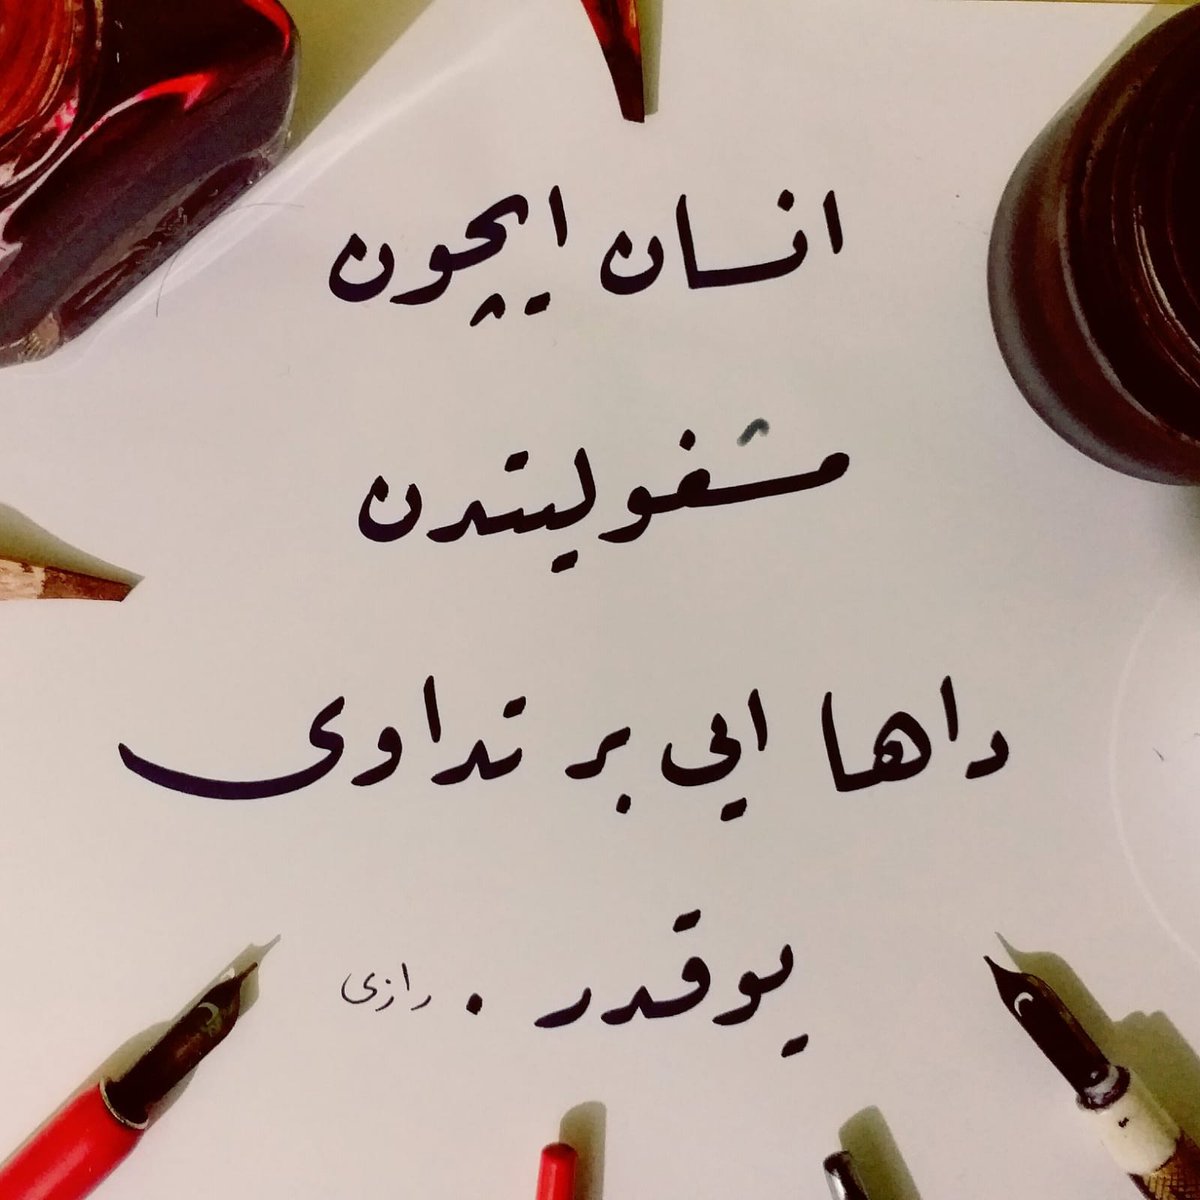 انسان ایچون
مشغولیتدن
داها ایی بر تداوی
یوقدر . رازی